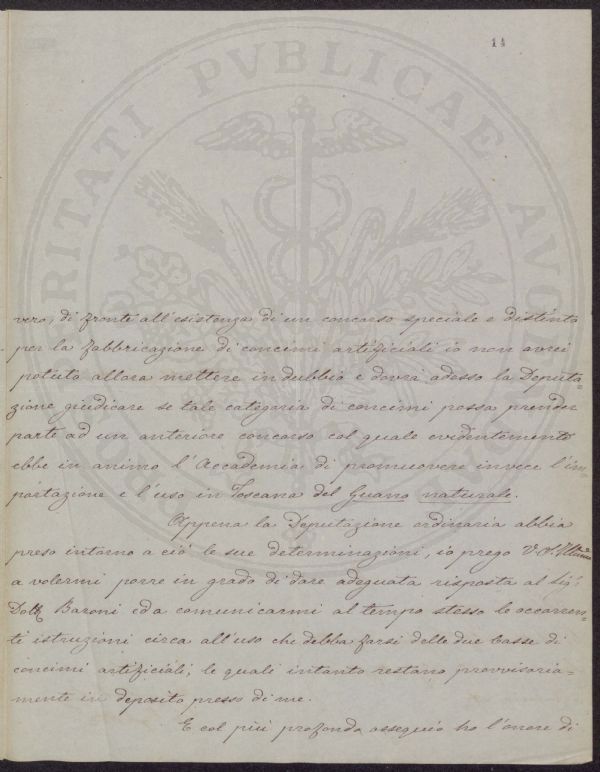 14
PROSPERITATI PVBLICAE AVGENDAE
vero, di fronte all'esistenza di un concorso speciale e distinto
per la fabbricazione di concimi artificiali io non avrei
potuto allora mettere in dubbio e dovrà adesso la Deputa=
zione giudicare se tale categoria di concimi possa prender
parte ad un anteriore concorso col quale evidentemente
ebbe in animo l'Accademia di promuovere invece l'im=
portazione e l'uso in Toscana del Guano naturale.
Appena la Deputazione ordinaria abbia
preso intorno a ciò le sue determinazioni, io prego V. S. Illma
a volermi porre in grado di dare adeguata risposta al Sig.
Dott. Baroni ed a comunicarmi al tempo stesso le occorren=
ti istruzioni circa all'uso che debba farsi delle due Casse di
concimi artificiali, le quali intanto restano provvisoria=
mente in deposito presso di me.
E col più profondo ossequio ho l'onore di